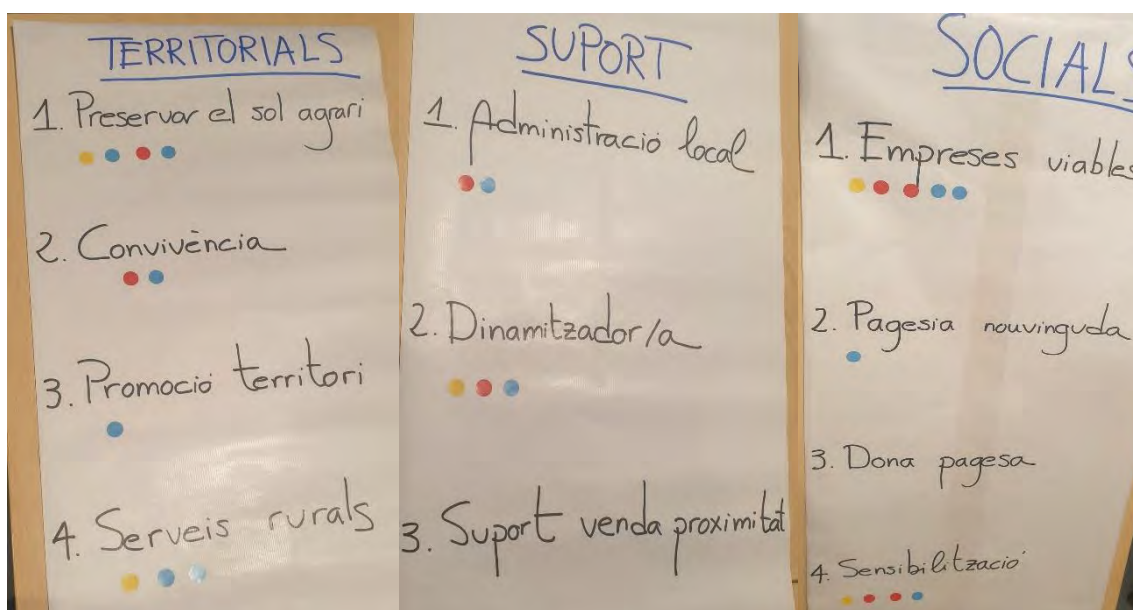 TERRITORIALS
1. Preservar el sol agrari
2. Convivència
3. Promoció territori
4. Serveis rurals
SUPORT
1. Administració local
2. Dinamitzador/a
3. Suport venda proximitat
SOCIALS
1. Empreses viables
2. Pagesia nouvinguda
3. Dona pagesa
4. Sensibilització